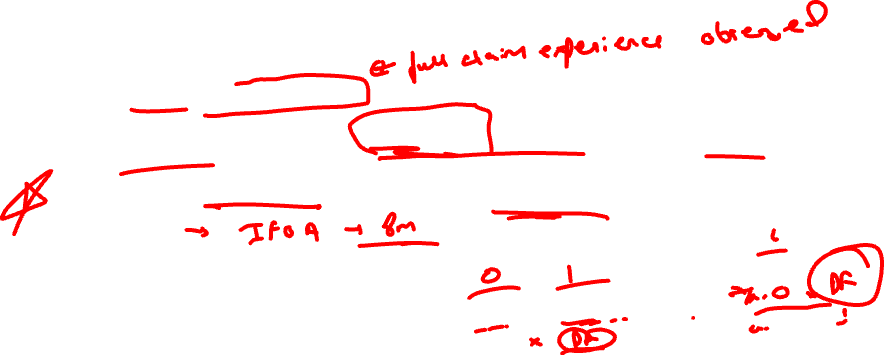 ← full claim experience observed
→ IFOA → 8m
0 1
DF
× DF